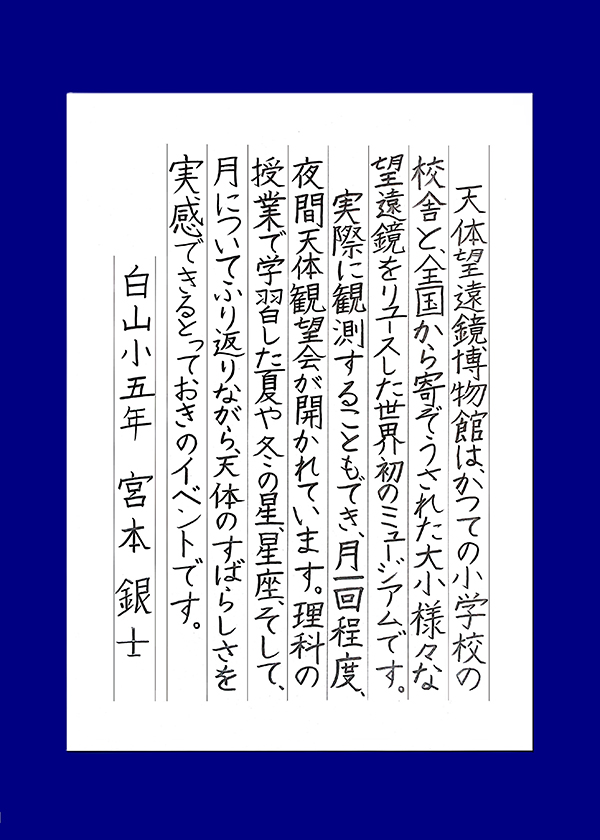 天体望遠鏡博物館は、かつての小学校の
校舎と、全国から寄ぞうされた大小様々な
望遠鏡をリユースした世界初のミュージアムです。
実際に観測することもでき、月一回程度、
夜間天体観望会が開かれています。理科の
授業で学習した夏や冬の星、星座、そして、
月についてふり返りながら、天体のすばらしさを
実感できるとっておきのイベントです。
白山小五年 宮本銀士